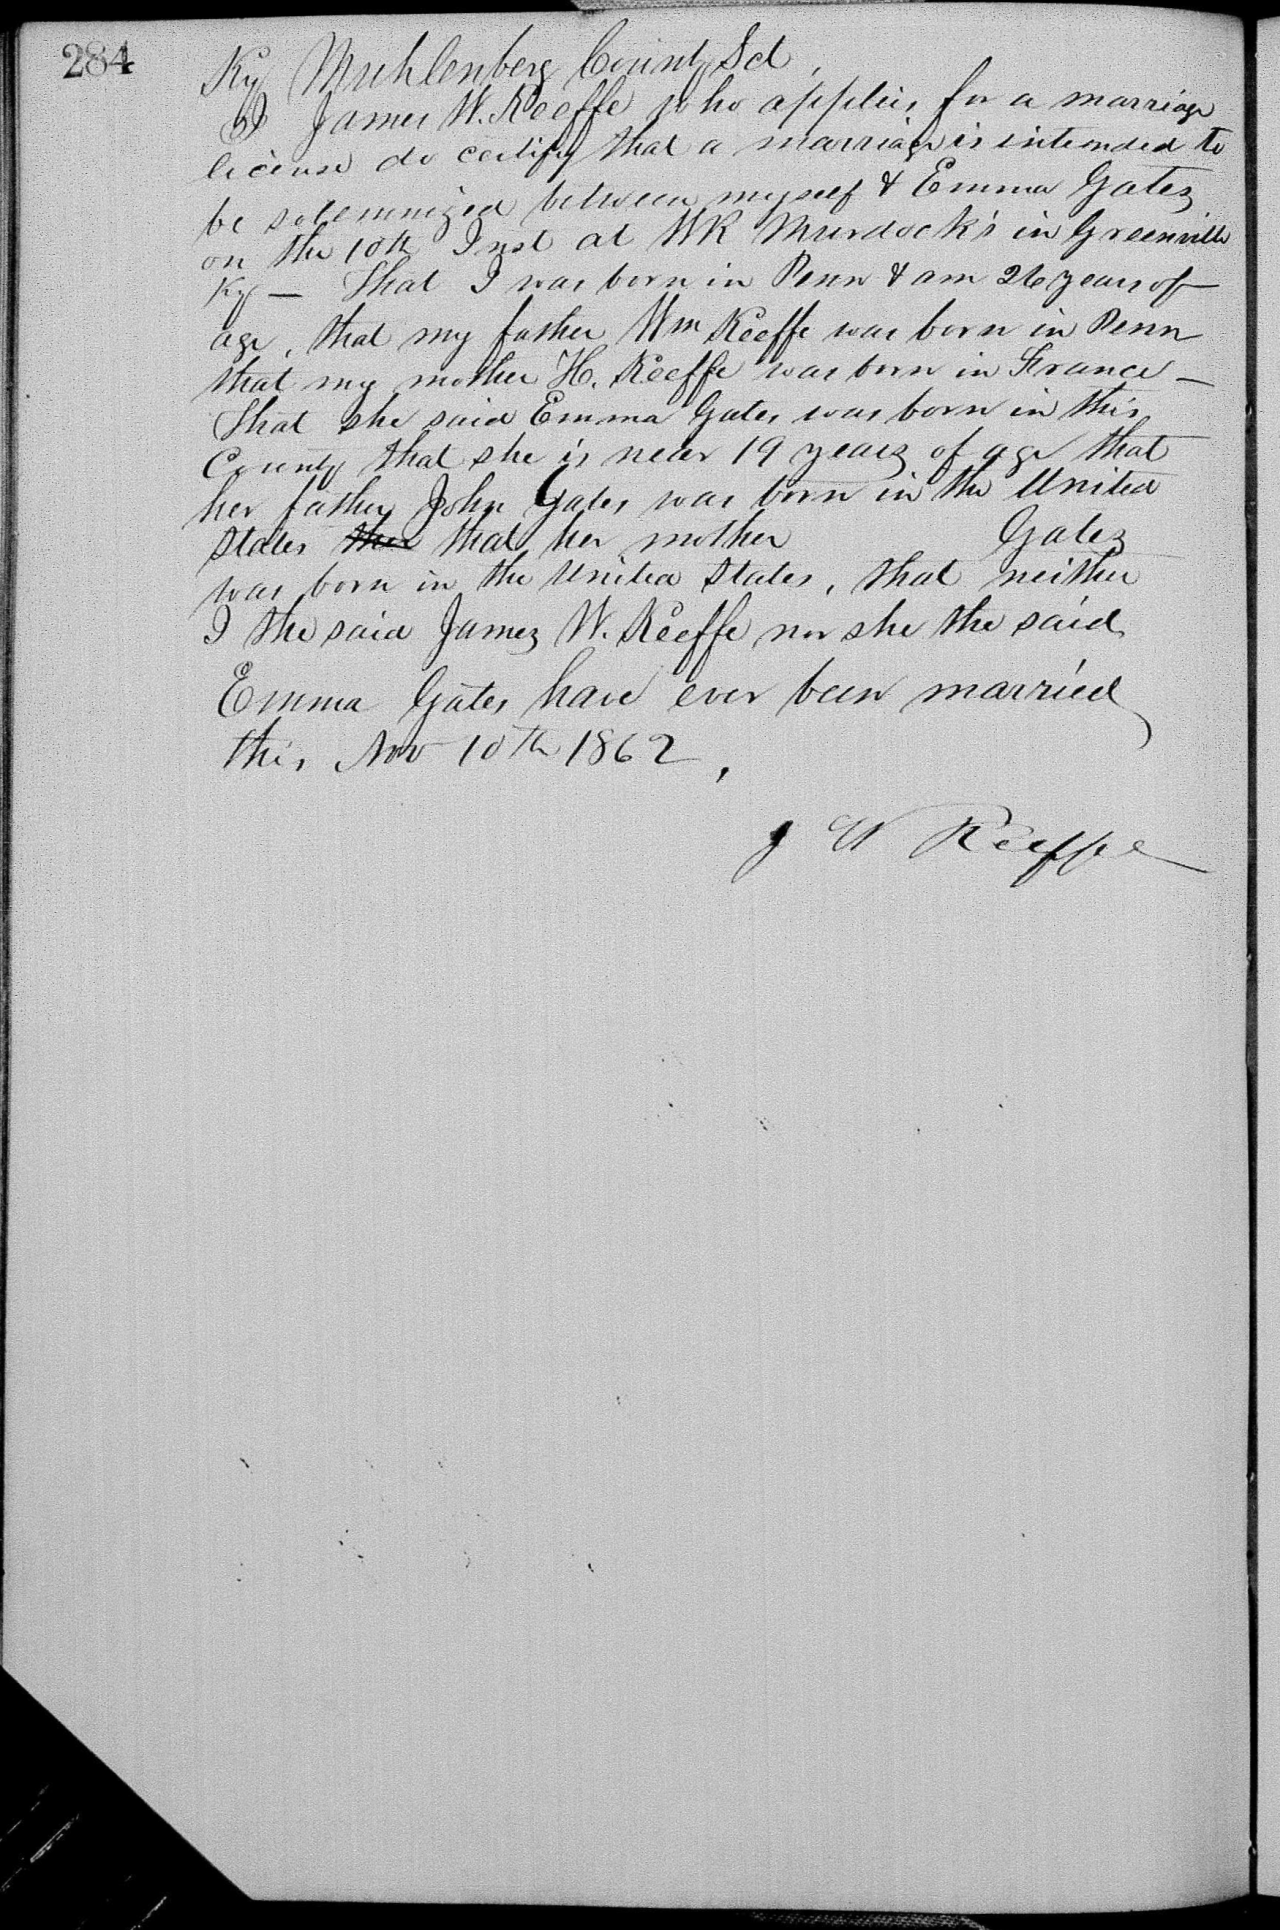 284
Ky Muhlenberg County Sct,
I James W. Keeffe who applies for a marriage
license do certify that a marriage is intended to
be solemnized between myself & Emma Gates
on the 10th Inst at WR Murdock's in Greenville
Ky — That I was born in Penn & am 26 years of
age, that my father Wm Keeffe was born in Penn
that my mother H. Keeffe was born in France —
That she said Emma Gates was born in this
County that she is near 19 years of age that
her father John Gates was born in the United
States ther that her mother Gates
was born in the United States, that neither
I the said James W. Keeffe nor she the said
Emma Gates have ever been married
this Nov 10th 1862,
J W Keeffe